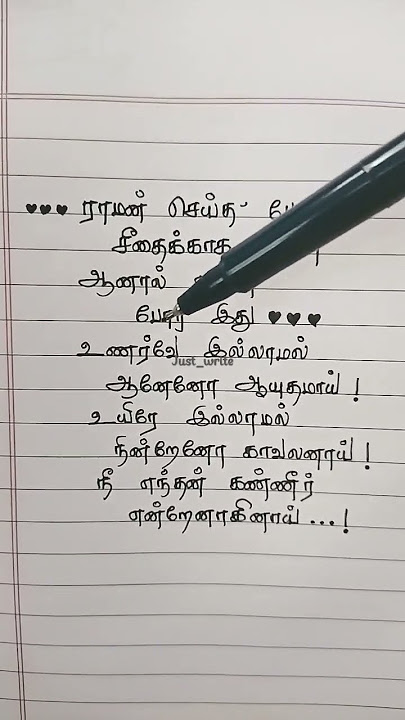 ♥♥♥ ராமன் செய்த
சீதைக்காக
ஆனால்
போர் இது ♥♥♥
உணர்வே இல்லாமல்
Just_write
ஆனேனோ ஆயுதமாய் !
உயிரே இல்லாமல்
நின்றேனோ காவலனாய் !
நீ எந்தன் கண்ணீர்
என்றேனாகினாய் ...!